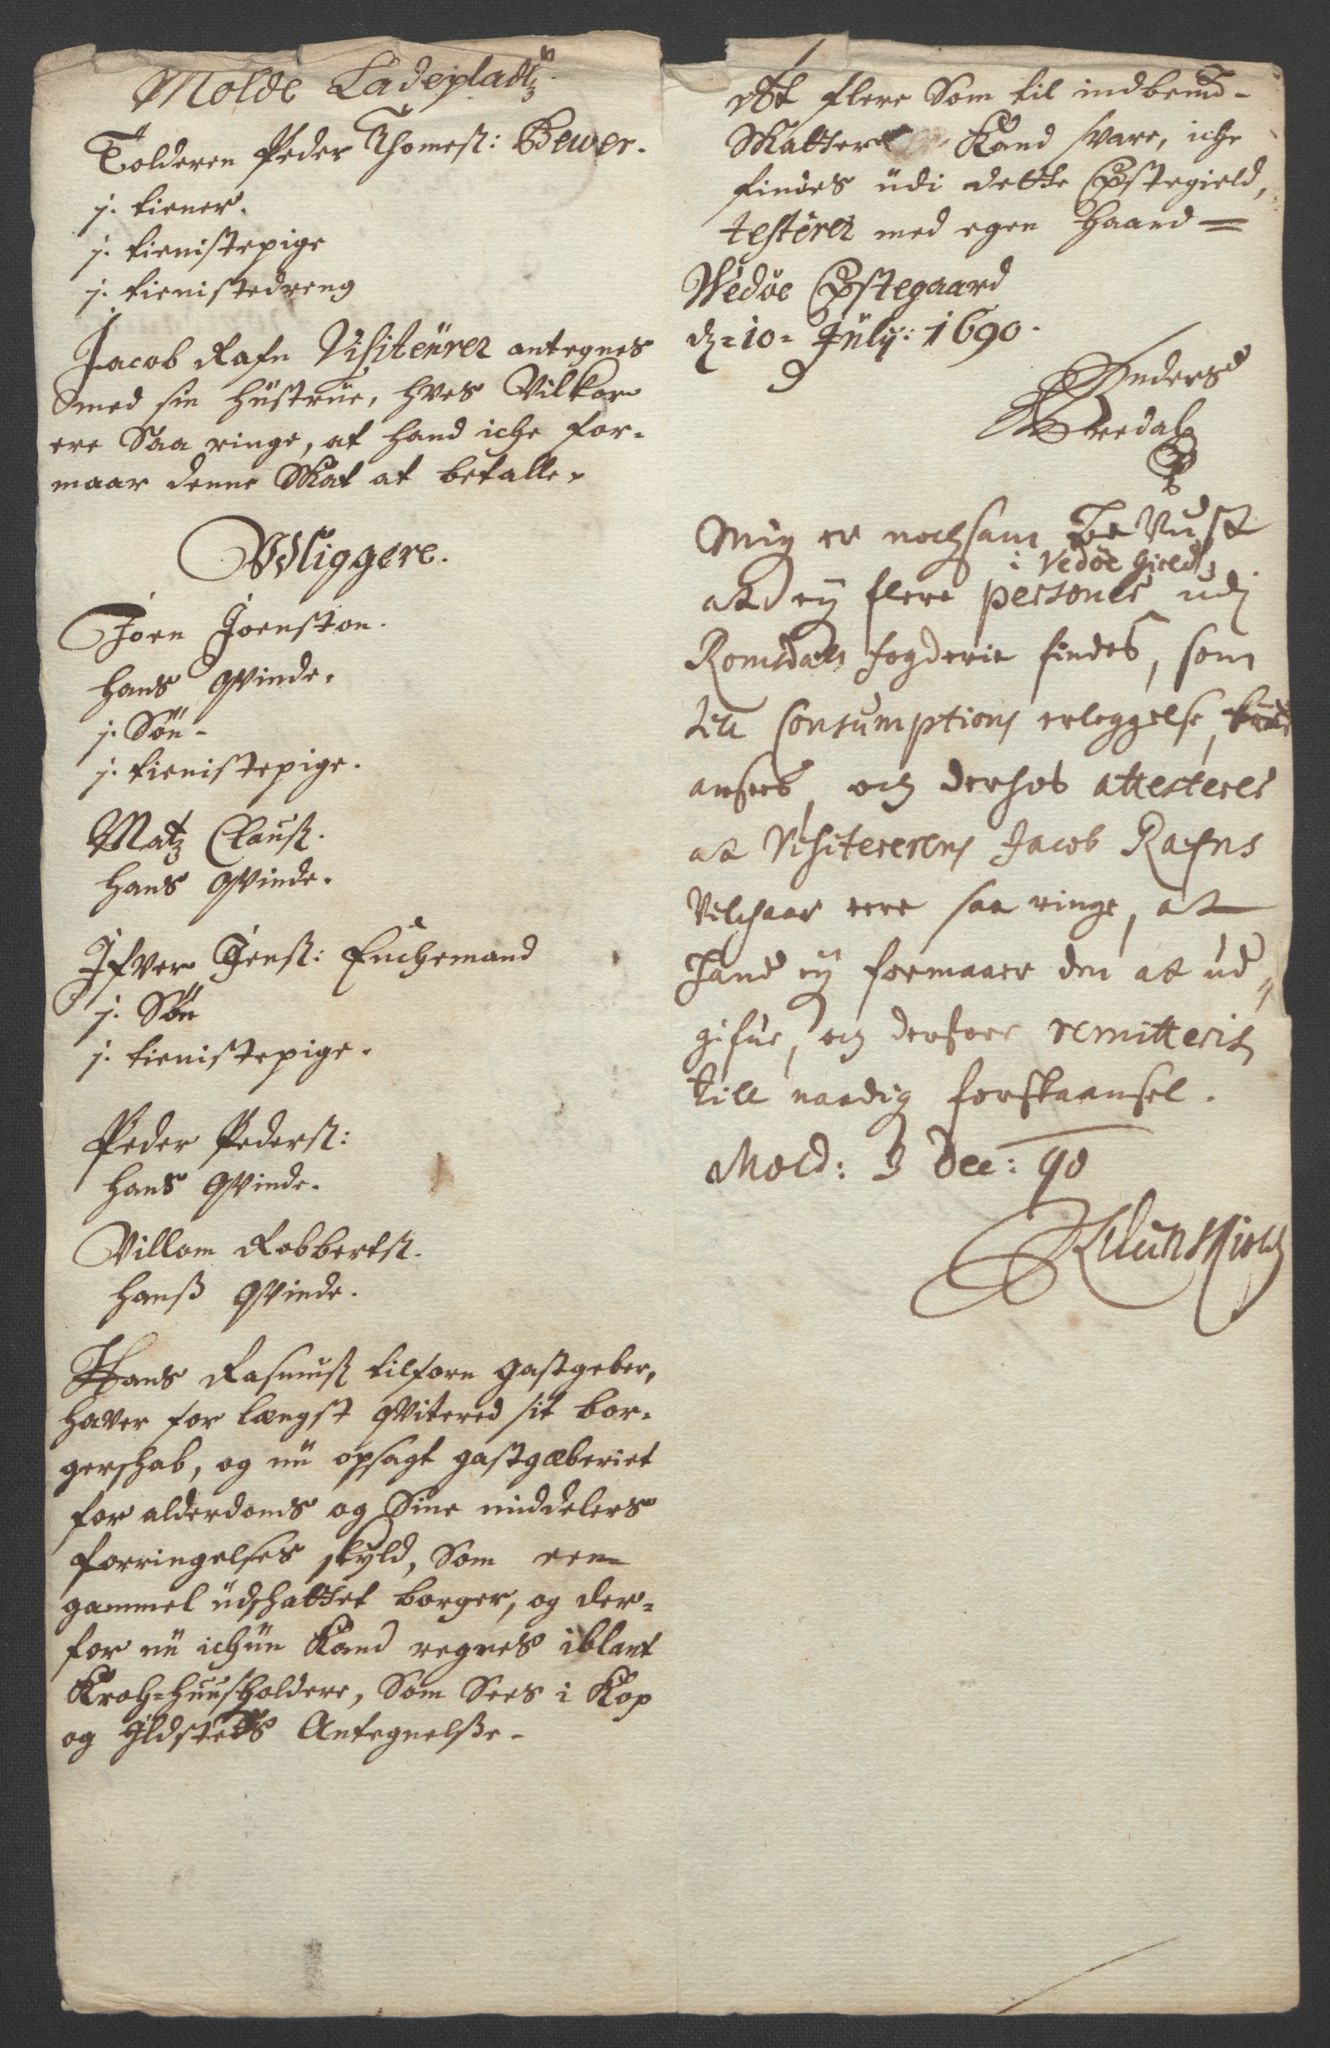 Molde Ladepladtz.
Tolderen Peder Thomeß: Bewer.
j. tiener.
j. tienistepige
j. tienistedreng
Jacob Rafn Visiteurer antegnes
med sin hüstrüe, hves Vilkor
ere Saa ringe, at hand iche for-
maar denne Skat at betalle.
Vdliggere.
Jörn Joenston.
hans Qvinde.
j. Sön
j. tienistepige.
Matz Clauß.
hans Qvinde.
Ifver Jenß: Enchemand
j. Sön
j. tienistepige.
Peder Pederß:
hans Qvinde.
Villom Robbertß.
hanß Qvinde.
Hans Rasmuß tilforn gastgeber,
haver for længst qvitered sit bor-
gerschab, og nü opsagt gastgæberiet
for alderdoms og Sine middelers
forringelses skyld, Som een
gammel üdschattet borger, og der-
for nü ichün kand regnes iblant
Kroh-huusholdere, Som Sees i Kop
og Ildsteds Antegnelße.
At flere Som til indbem:te
Skatter Kand svare, iche
findes üdi dette Præstegield,
testerer med egen haand
Wedöe Præstegaard
dz 10 Julij: 1690.
Anders
Bredal
Mig er nochsam bevust
at ey flere personer udj
i Vedöe gield
Romsdals fogderie findes, som
till Consumptions erleggelse kand
ansees, och derhos attesteres
at Visitererens Jacob Rafns
Velchaar eere saa ringe, at
hand ey formaaer den at ud-
gifue, och derfoer remitteris
till naadig forskaansel.
Mold: 3 Dec: 90